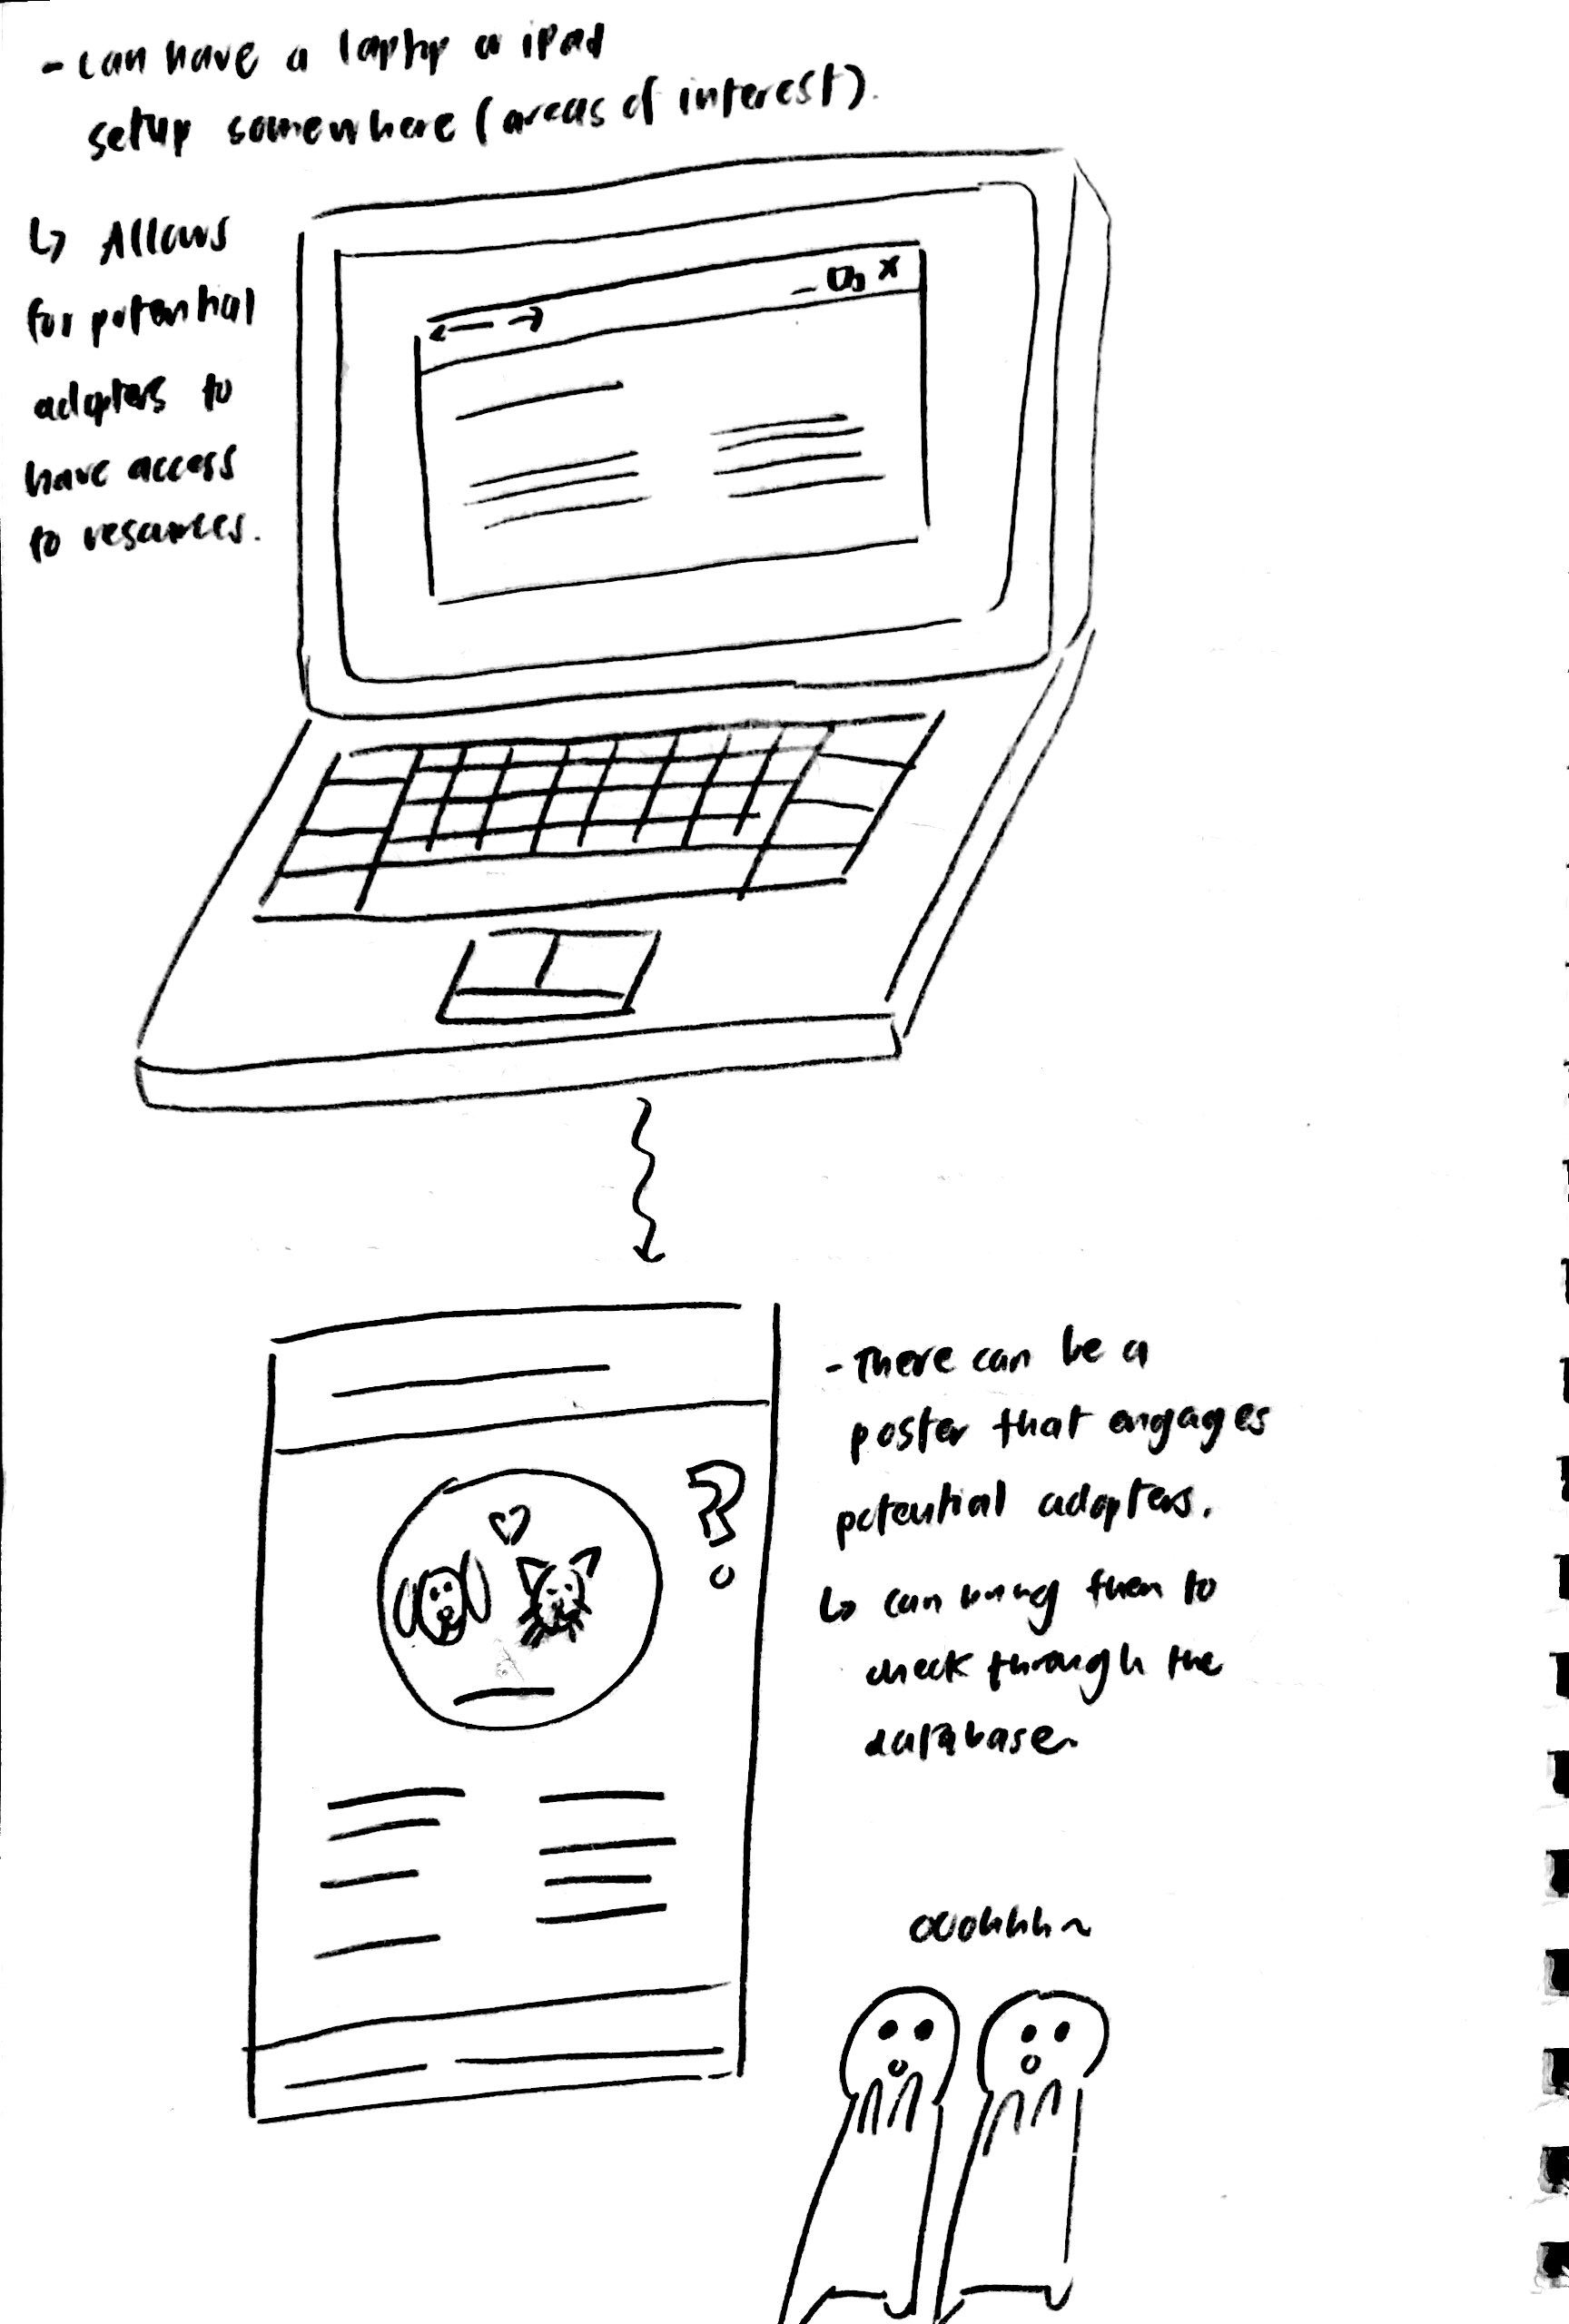 - can have a laptop or iPad
setup somewhere (areas of interest).
↳ Allows
for potential
adopters to
have access
to resources.
- There can be a
poster that engages
potential adopters.
↳ can bring them to
check through the
database.
?
ooohhh~